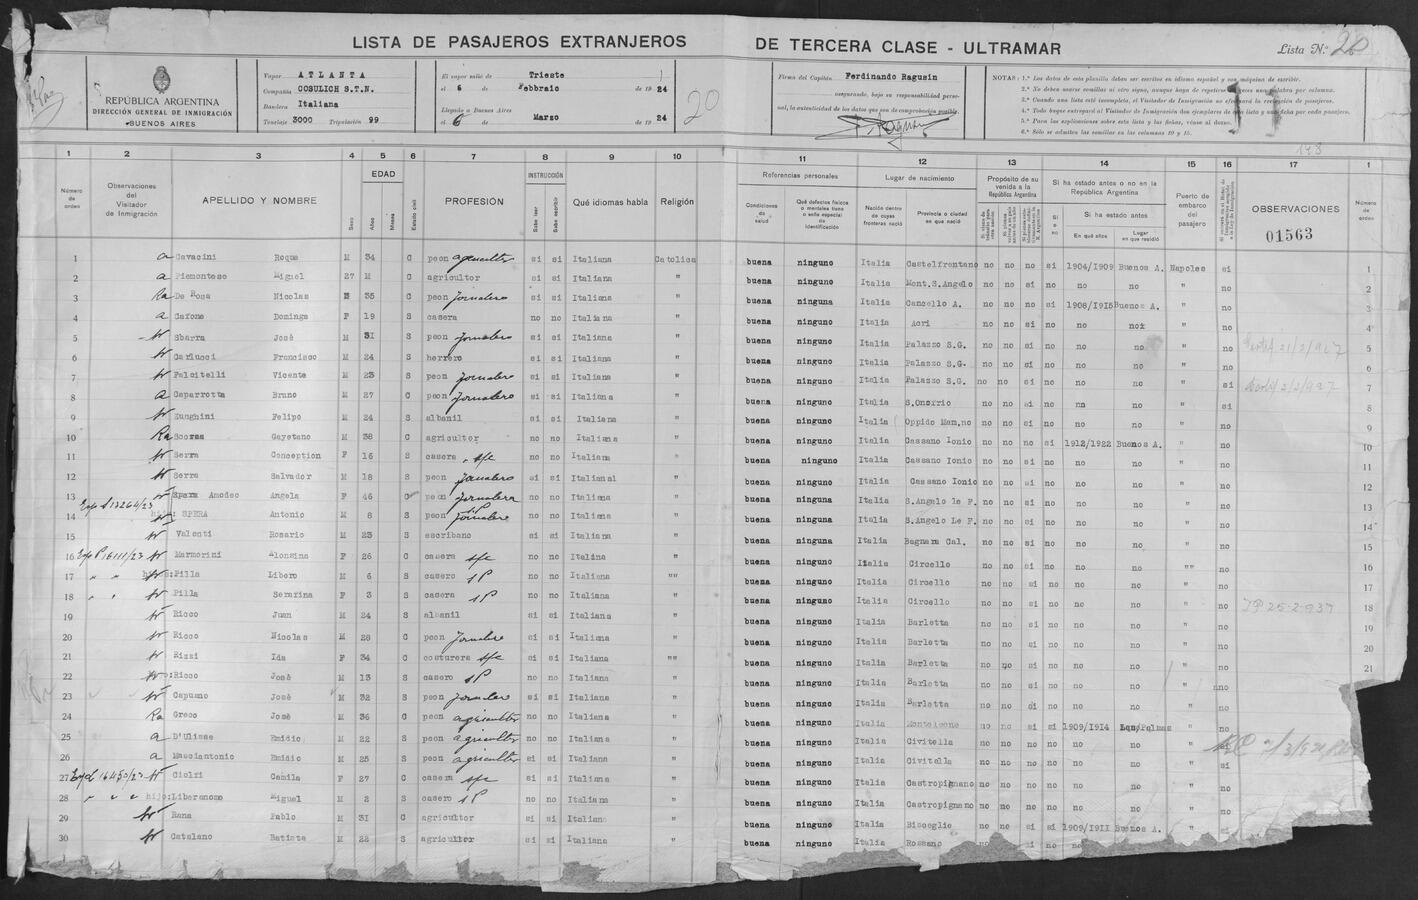 LISTA DE PASAJEROS EXTRANJEROS DE TERCERA CLASE - ULTRAMAR Lista N.° 20
REPÚBLICA ARGENTINA
DIRECCIÓN GENERAL DE INMIGRACIÓN
BUENOS AIRES
Vapor ATLANTA
Compañía COSULICH S.T.N.
Bandera Italiana
Tonelaje 3000 Tripulación 99
El vapor salió de Trieste
el 6 de Febbraio de 1924
Llegado a Buenos Aires
el 6 de Marzo de 1924
20
Firma del Capitán Ferdinando Ragusin
asegurando, bajo su responsabilidad personal, la autenticidad de los datos que son de comprobación posible.
NOTAS: 1.ª Los datos de esta planilla deben ser escritos en idioma español y con máquina de escribir.
2.ª No deben usarse comillas ni otro signo, aunque haya de repetirse veces una palabra por columna.
3.ª Cuando una lista esté incompleta, el Visitador de Inmigración
4.ª Todo buque entregará al Visitador de Inmigración dos ejemplares de esta lista y una ficha por cada pasajero.
5.ª Para las explicaciones sobre esta lista y las fichas, véase al dorso.
6.ª Sólo se admiten las comillas en las columnas 10 y 15.
148
1 2 3 4 5 6 7 8 9 10 11 12 13 14 15 16 17 1
Número de orden
Observaciones del Visitador de Inmigración
APELLIDO Y NOMBRE
Sexo
EDAD
Años
Meses
Estado civil
PROFESIÓN
INSTRUCCIÓN
Sabe leer
Sabe escribir
Qué idiomas habla
Religión
Referencias personales
Condiciones de salud
Qué defectos físicos o mentales tiene o seña especial de identificación
Lugar de nacimiento
Nación dentro de cuyas fronteras nació
Provincia o ciudad en que nació
Propósito de su venida a la República Argentina
Si ha estado antes o no en la República Argentina
Sí o no
Si ha estado antes
En qué años
Lugar en que residió
Puerto de embarco del pasajero
OBSERVACIONES
01563
Número de orden
1 a Cavacini Roque M 34 C peon agricultor si si Italiana Catolica buena ninguno Italia Castelfrentano no no no si 1904/1909 Buenos A. Napoles si 1
2 a Piemontese Miguel 27 M C agricultor si si Italiana " buena ninguno Italia Mont.S.Angelo no no si no no no " no 2
3 Ra De Rosa Nicolas M 35 C peon jornalero si si Italiana " buena ninguna Italia Cancello A. no no no si 1908/1915 Buenos A. " no 3
4 a Cafone Domingo F 19 S casera no no Italiana " buena ninguno Italia Acri no no si no no no " no 4
5 Sbarra José M 31 S peon jornalero si si Italiana " buena ninguno Italia Palazzo S.G. no no si no no no " no 5
6 Carlucci Francisco M 24 S herrero si si Italiana " buena ninguno Italia Palazzo S.G. no no si no no no " no 6
7 Falcitelli Vicente M 23 S peon jornalero si si Italiana " buena ninguno Italia Palazzo S.G. no no si no no no " si 7
8 a Caparrotta Bruno M 27 C peon jornalero si si Italiana " buena ninguno Italia S.Onofrio no no si no no no " si 8
9 Zunghini Felipo M 24 S albanil si si Italiana " buena ninguno Italia Oppido Mam.no no no si no no no " no 9
10 Ra Scorza Cayetano M 38 C agricultor no no Italiana " buena ninguno Italia Cassano Ionio no no no si 1912/1922 Buenos A. " no 10
11 Serra Conception F 16 S casera s/c no no Italiana " buena ninguno Italia Cassano Ionio no no si no no no " no 11
12 Serra Salvador M 18 S peon jornalero si si Italianal " buena ninguno Italia Cassano Ionio no no si no no no " no 12
13 Spera Amodeo Angela F 46 C peon jornalera no no Italiana " buena ninguna Italia S.Angelo le F. no no si no no no " no 13
14 hijo: SPERA Antonio M 8 S peon jornalero no no Italiana " buena ninguna Italia S.Angelo Le F. no no si no no no " no 14
15 Valenti Rosario M 23 S escribano si si Italiana " buena ninguna Italia Bagnara Cal. no no si no no no " no 15
16 Marmorini Alonzina F 26 C casera no no Italina " buena ninguno Italia Circello no no si no no no no 16
17 hijo: Pilla Libero M 6 S casero no no Italiana "" buena ninguno Italia Circello no no si no no no " no 17
18 Pilla Serarina F 3 S casera no no Italiana " buena ninguno Italia Circello no no si no no no " no 18
19 Ricco Juan M 24 S albanil si si Italiana " buena ninguno Italia Barletta no no si no no no " no 19
20 Ricco Nicolas M 28 C peon jornalero si si Italiana " buena ninguno Italia Barletta no no si no no no " no 20
21 Rizzi Ida F 34 C costurera si si Italiana "" buena ninguno Italia Barletta no no si no no no " no 21
22 Ricco José M 13 S casero si si Italiana " buena ninguno Italia Barletta no no si no no no " no
23 Capuano José M 32 S peon jornalero si si Italiana " buena ninguno Italia Barletta no no si no no no " no
24 Ra Greco José M 36 C peon agricultor no no Italiana " buena ninguno Italia Monteleone no no si si 1909/1914 Palmas " no
25 a D'Ulisse Emidio M 22 S peon agricultor no no Italiana " buena ninguno Italia Civitella no no si no no no " no
26 a Masciantonio Emidio M 25 S peon agricultor si si Italiana " buena ninguno Italia Civitella no no si no no no " si
27 Ciolfi Camila F 27 C casera si si Italiana " buena ninguno Italia Castropignano no no si no no no " no
28 hijo: Liberanomo Miguel M 2 S casero no no Italiana " buena ninguno Italia Castropignano no no si no no no "
29 Rana Pablo M 31 C agricultor si si Italiana " buena ninguno Italia Bisceglie no no si si 1909/1911 Buenos A. "
30 Catalano Batista M 22 S agricultor si si Italiana " buena ninguno Italia Rossano si no no no